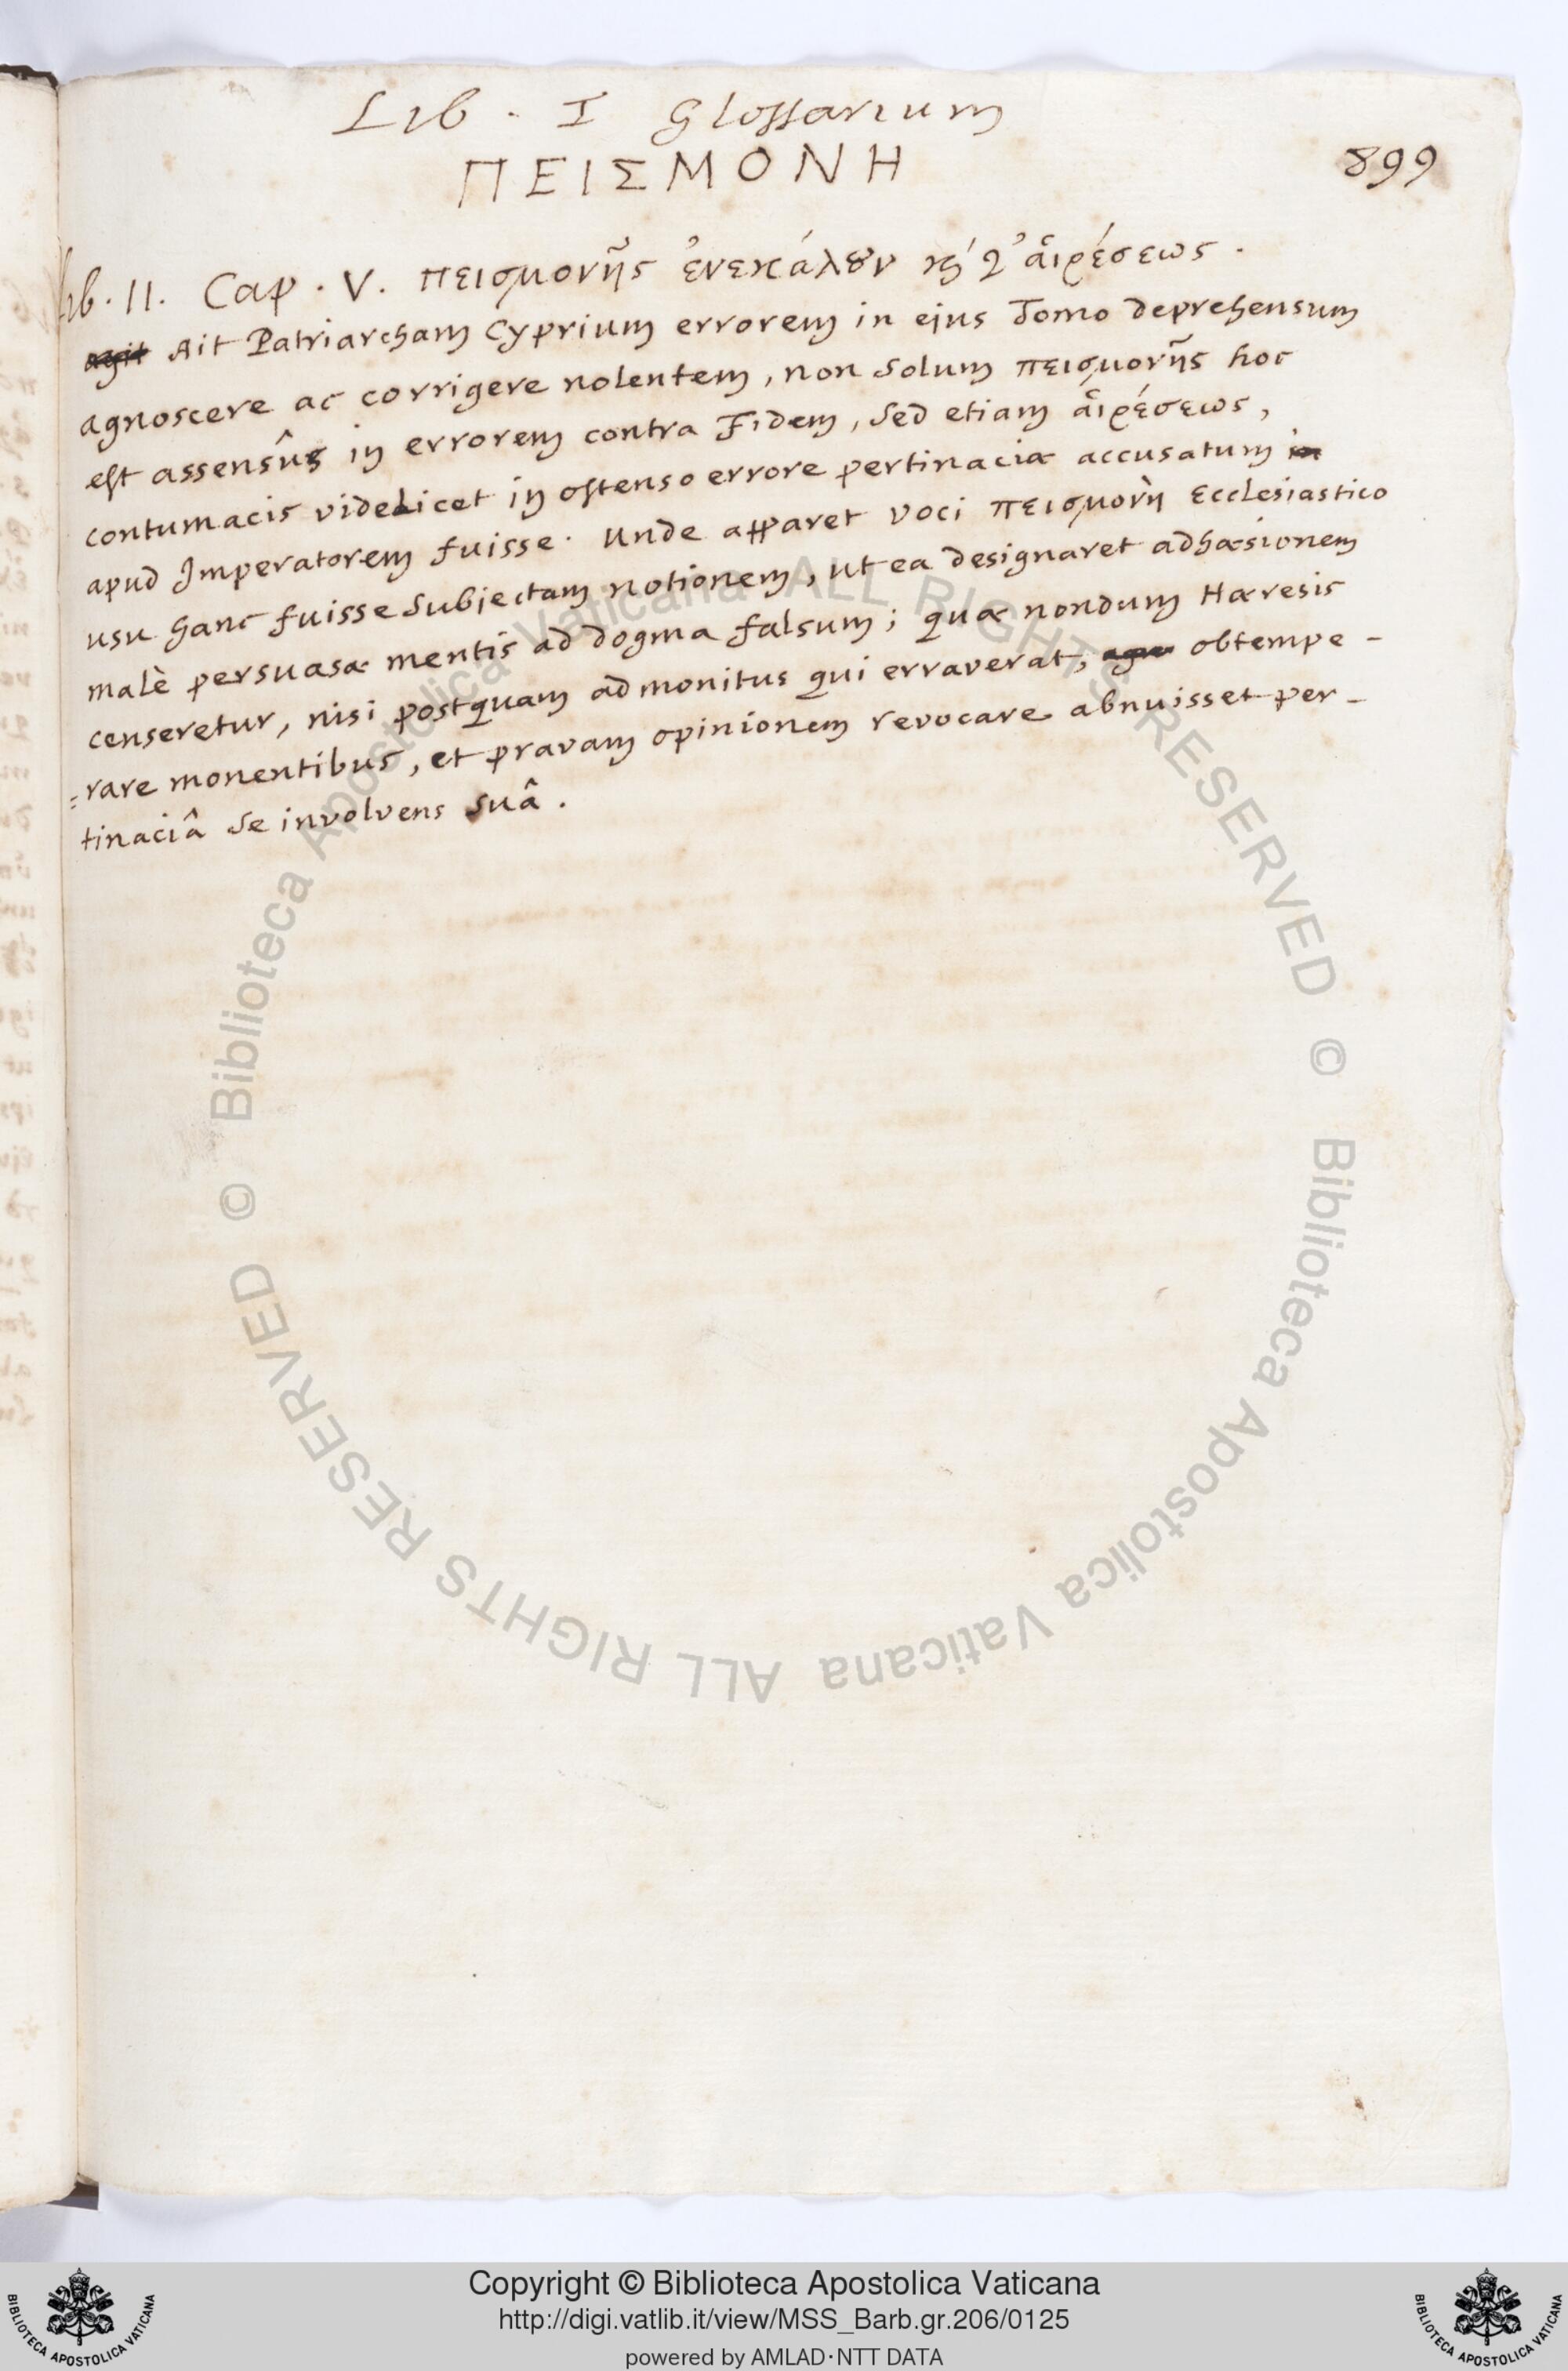 Lib. I Glossarium
ΠΕΙΣΜΟΝΗ
899
Lib. II. Cap. V. πεισμονῆς ἐνεκάλουν καὶ αἱρέσεως.
Ait Patriarcham Cyprium errorem in ejus Tomo deprehensum
agnoscere ac corrigere nolentem, non solum πεισμονῆς hoc
est assensûs in errorem contra Fidem, sed etiam αἱρέσεως,
contumacis videlicet in ostenso errore pertinaciæ accusatum in
apud Imperatorem fuisse. Unde apparet voci πεισμονὴ Ecclesiastico
usu hanc fuisse subjectam notionem, ut ea designaret adhæsionem
malè persuasæ mentis ad dogma falsum; quæ nondum Hæresis
censeretur, nisi postquam admonitus qui erraverat, obtempe-
=rare monentibus, et pravam opinionem revocare abnuisset per-
tinaciâ se involvens suâ.
© Biblioteca Apostolica Vaticana ALL RIGHTS RESERVED
© Biblioteca Apostolica Vaticana ALL RIGHTS RESERVED
BIBLIOTECA APOSTOLICA VATICANA
Copyright © Biblioteca Apostolica Vaticana
http://digi.vatlib.it/view/MSS_Barb.gr.206/0125
powered by AMLAD·NTT DATA
BIBLIOTECA APOSTOLICA VATICANA